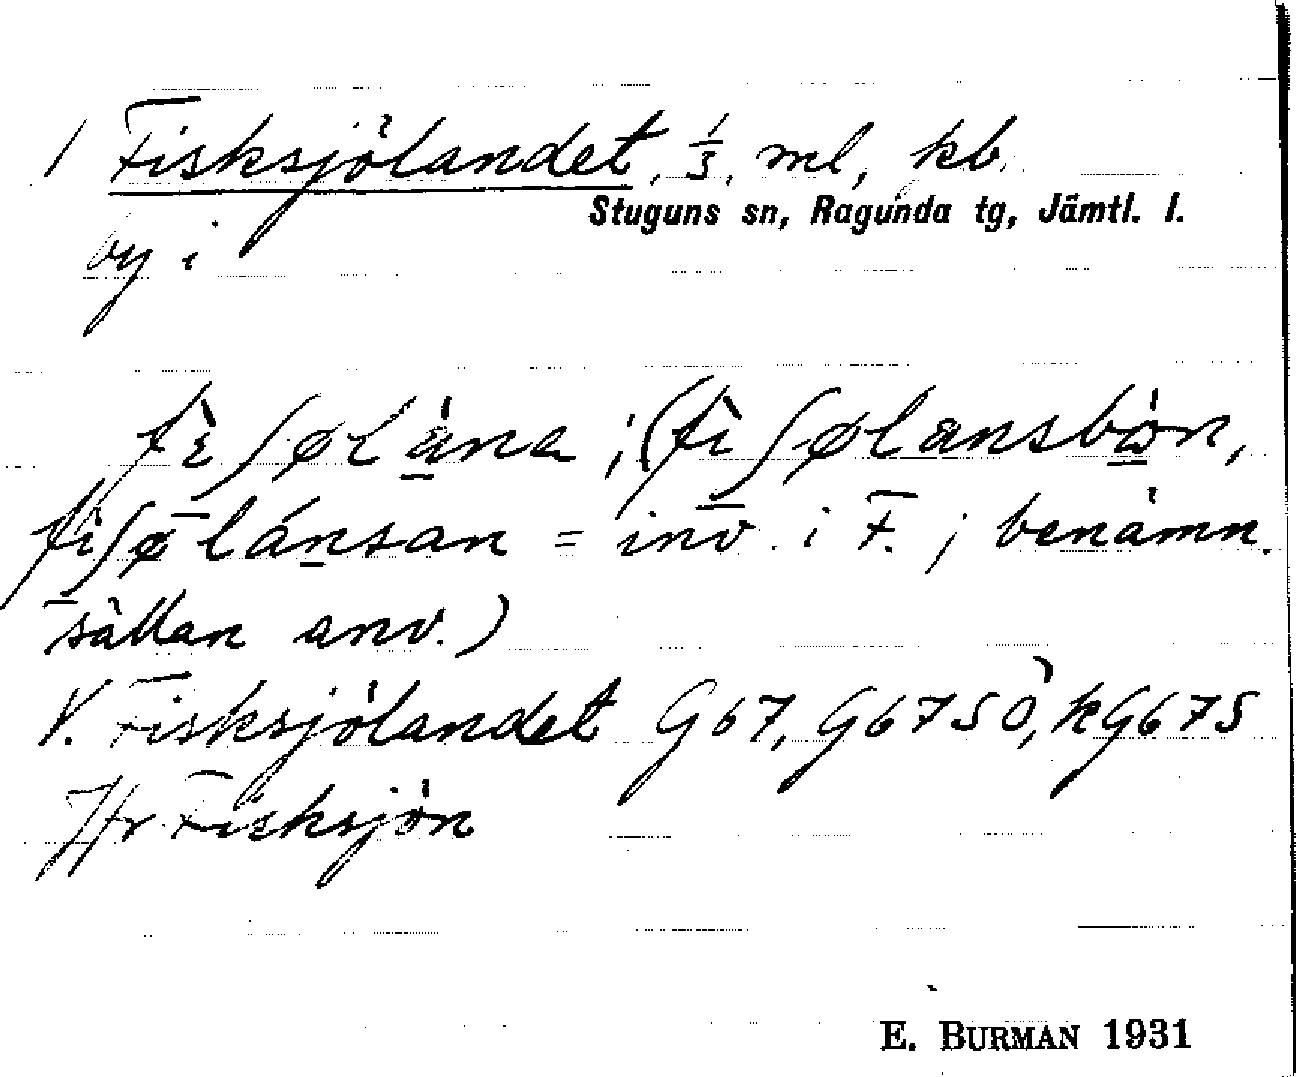 1 Fisksjölandet, 1/3, ml, kb.
Stuguns sn, Ragunda tg, Jämtl. l.
by i
fìʃøläna; (fìʃølansbön,
fìʃølánsan = inv. i F.; benämn.
sällan anv.)
V. Fisksjölandet G67, G675Ö, kG675
Jfr Fisksjön
E. BURMAN 1931